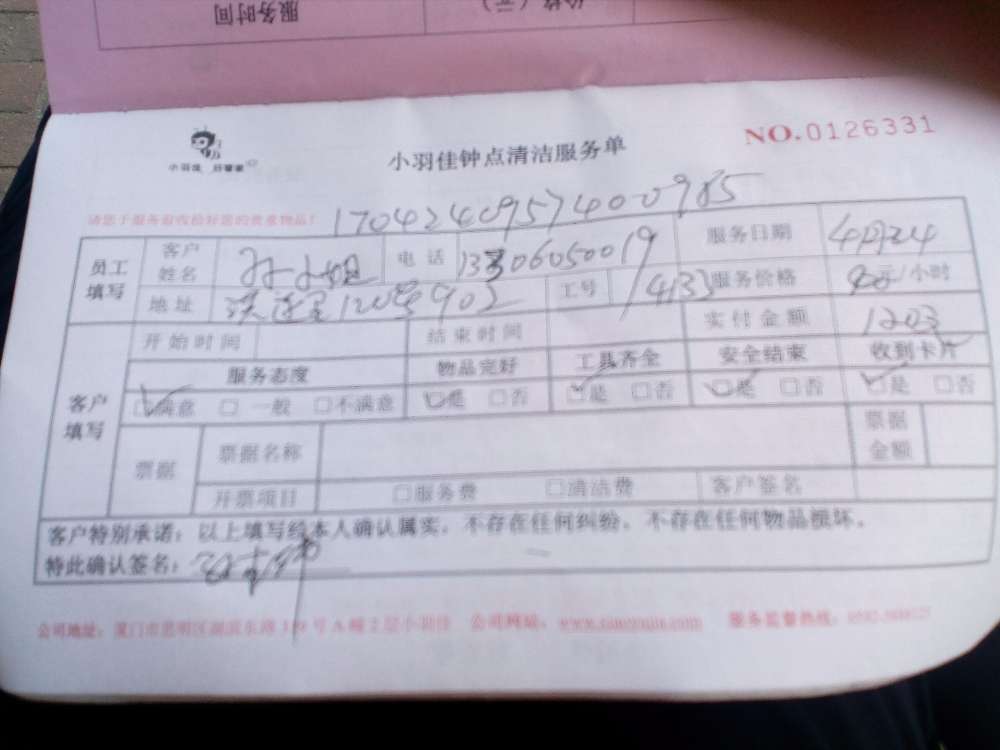 服务时间
价格（元）
小羽佳 好管家
小羽佳钟点清洁服务单
NO.0126331
请您于服务前收检好您的贵重物品！ 17042409574000985
员工填写 客户姓名 小姐 电话 13306050019 服务日期 4月24
地址 120号903 工号 14133 服务价格 元/小时
客户填写 开始时间 结束时间 实付金额 1203
服务态度 物品完好 工具齐全 安全结束 收到卡片
□满意 □一般 □不满意 □是 □否 □是 □否 □是 □否 □是 □否
票据 票据名称 票据金额
开票项目 □服务费 □清洁费 客户签名
客户特别承诺：以上填写经本人确认属实，不存在任何纠纷，不存在任何物品损坏。
特此确认签名：
公司地址：厦门市思明区湖滨东路 号A幢2层小羽佳 公司网站： 服务监督热线：